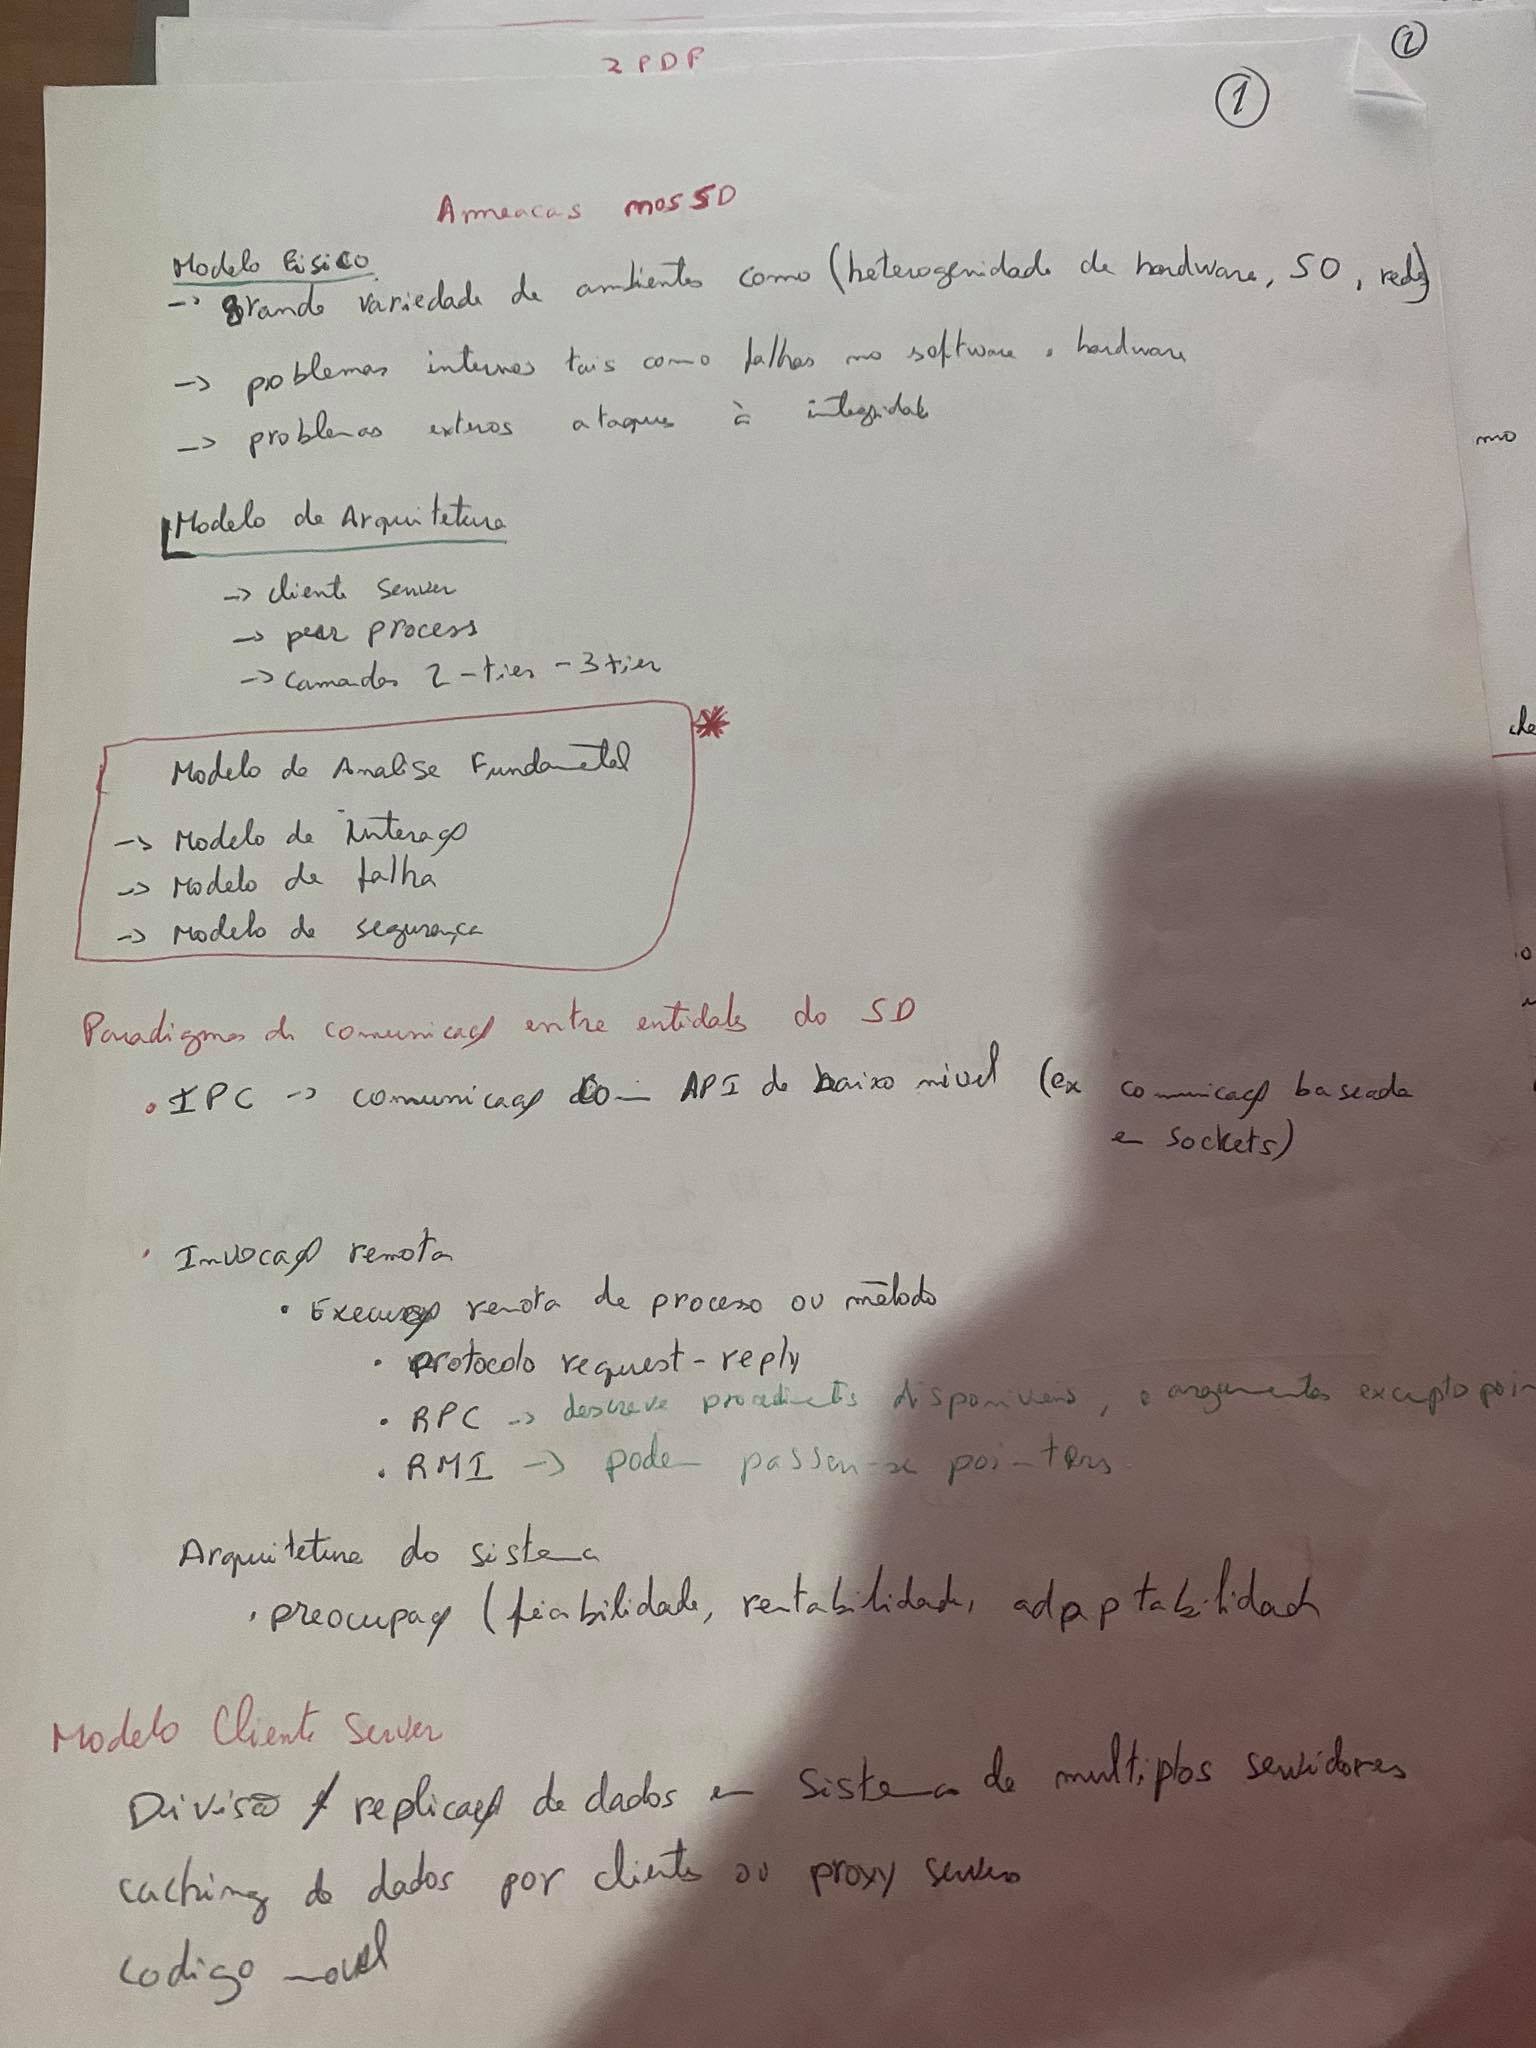 2 PDF
2
1
Ameacas nos SD
Modelo Fisico
-> grande variedade de ambientes como (heterogenidade de hardware, SO, redes)
-> problemas internos tais como falhas no software e hardware
-> problemas exteros ataques à integridade
Modelo de Arquitetura
-> cliente server
-> peer process
-> camadas 2-tier - 3 tier
Modelo de Analise Fundamental
-> Modelo de Interação
-> Modelo de falha
-> Modelo de segurança
Paradigmas de comunicação entre entidades do SD
• IPC -> comunicação com API de baixo nivel (ex comunicação baseada
em sockets)
• Invocação remota
• Execução remota de processo ou método
• protocolo request-reply
• RPC -> descreve procedimentos disponiveis, e argumentos excepto poin
• RMI -> podem passar-se pointers
Arquitetura do sistema
• preocupação (fiabilidade, rentabilidade, adaptabilidade
Modelo Cliente Server
Divisão / replicação de dados em sistema de multiplos servidores
caching de dados por cliente ou proxy server
codigo movel
no
de